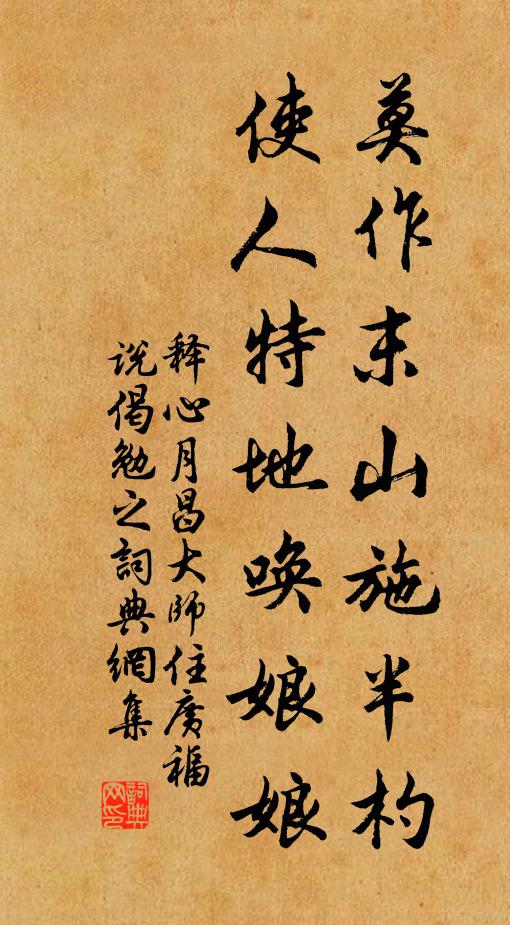 莫作末山施半杓
使人特地唤娘娘
释心月昌大師住廣福
说偈勉之詞典網集
詞典网印